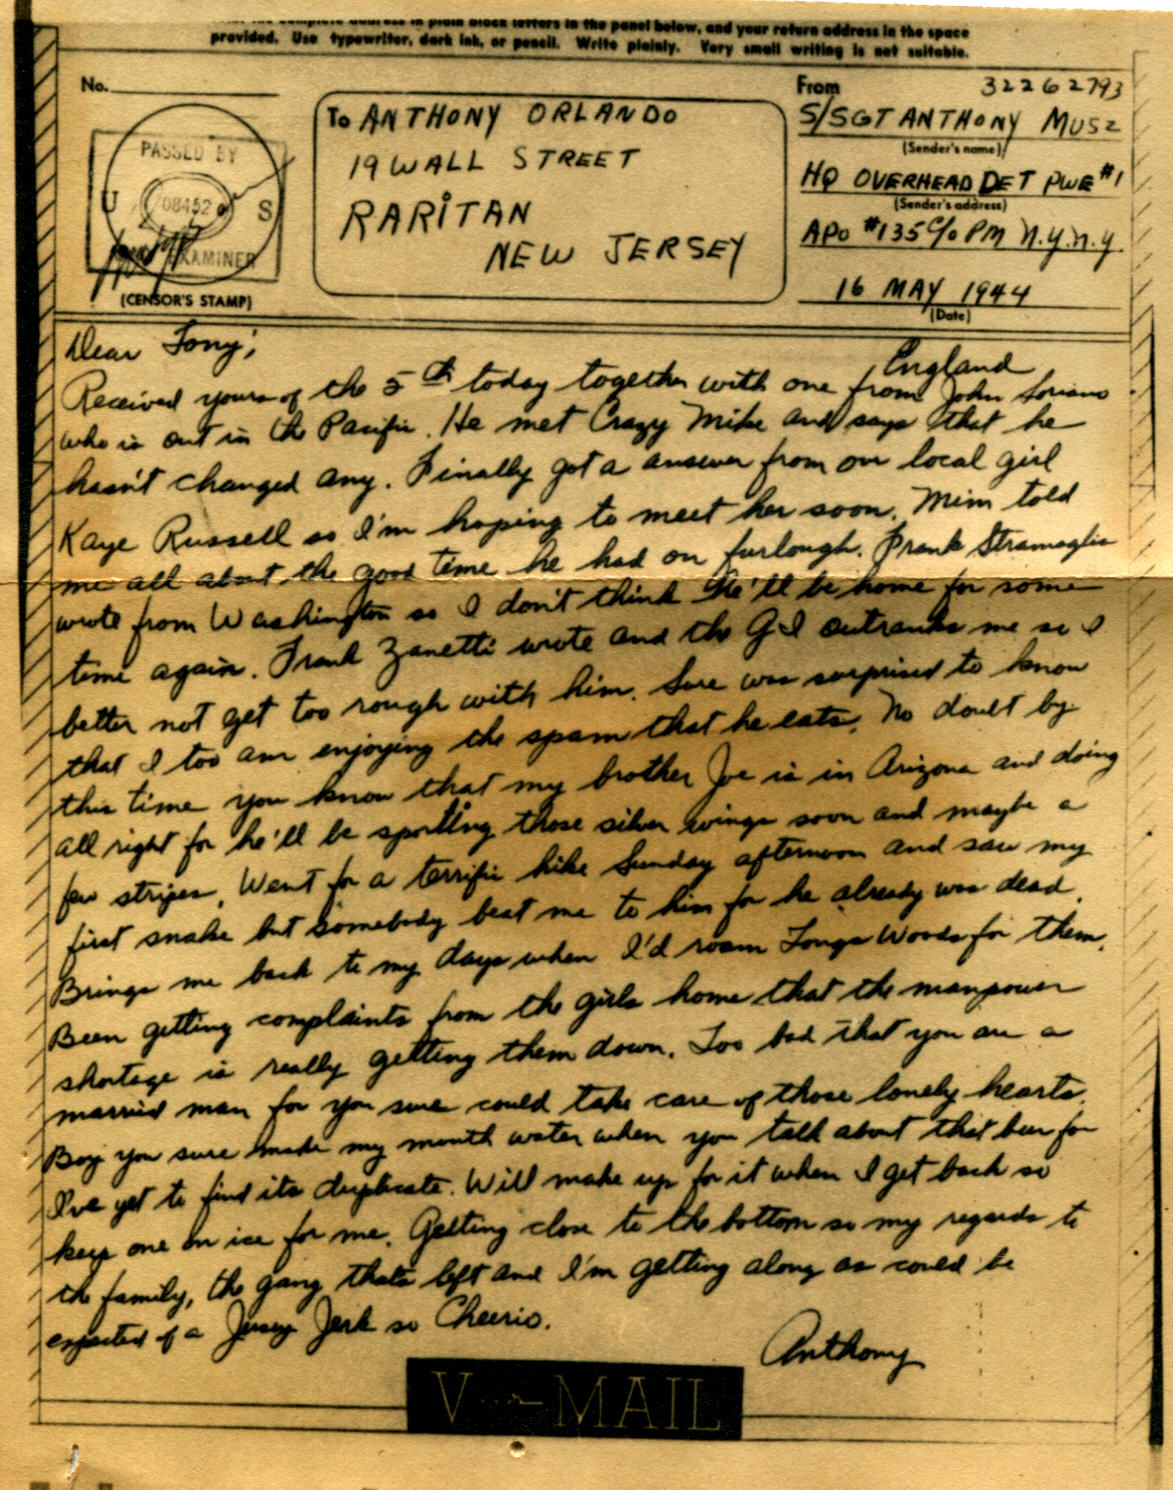 complete address in plain block letters in the panel below, and your return address in the space
provided. Use typewriter, dark ink, or pencil. Write plainly. Very small writing is not suitable.
No.
PASSED BY
U S
08452
EXAMINER
(CENSOR'S STAMP)
To ANTHONY ORLANDO
19 WALL STREET
RARITAN
NEW JERSEY
From 32262793
S/SGT ANTHONY MUSZ
(Sender's name)
HQ OVERHEAD DET PWE #1
(Sender's address)
APO #135 C/o PM N.Y. N.Y.
16 MAY 1944
(Date)
Dear Tony;
England
Received yours of the 5th today together with one from John Soriano
who is out in the Pacific. He met Crazy Mike and says that he
hasn't changed any. Finally got a answer from our local girl
Kaye Russell so I'm hoping to meet her soon. Mim told
me all about the good time he had on furlough. Frank Stramaglia
wrote from Washington so I don't think he'll be home for some
time again. Frank Zanetti wrote and the G I outranks me so I
better not get too rough with him. Sure was surprised to know
that I too am enjoying the spam that he eats. No doubt by
this time you know that my brother Joe is in Arizona and doing
all right for he'll be sporting those silver wings soon and maybe a
few stripes. Went for a terrific hike Sunday afternoon and saw my
first snake but somebody beat me to him for he already was dead.
Brings me back to my days when I'd roam Tongs Woods for them.
Been getting complaints from the girls home that the manpower
shortage is really getting them down. Too bad that you are a
married man for you sure could take care of those lonely hearts.
Boy you sure made my mouth water when you talk about that beer for
I've yet to find its duplicate. Will make up for it when I get back so
keep one on ice for me. Getting close to the bottom so my regards to
the family, the gang thats left and I'm getting along as could be
expected of a Jersey Jerk so Cheerio.
Anthony
V-MAIL